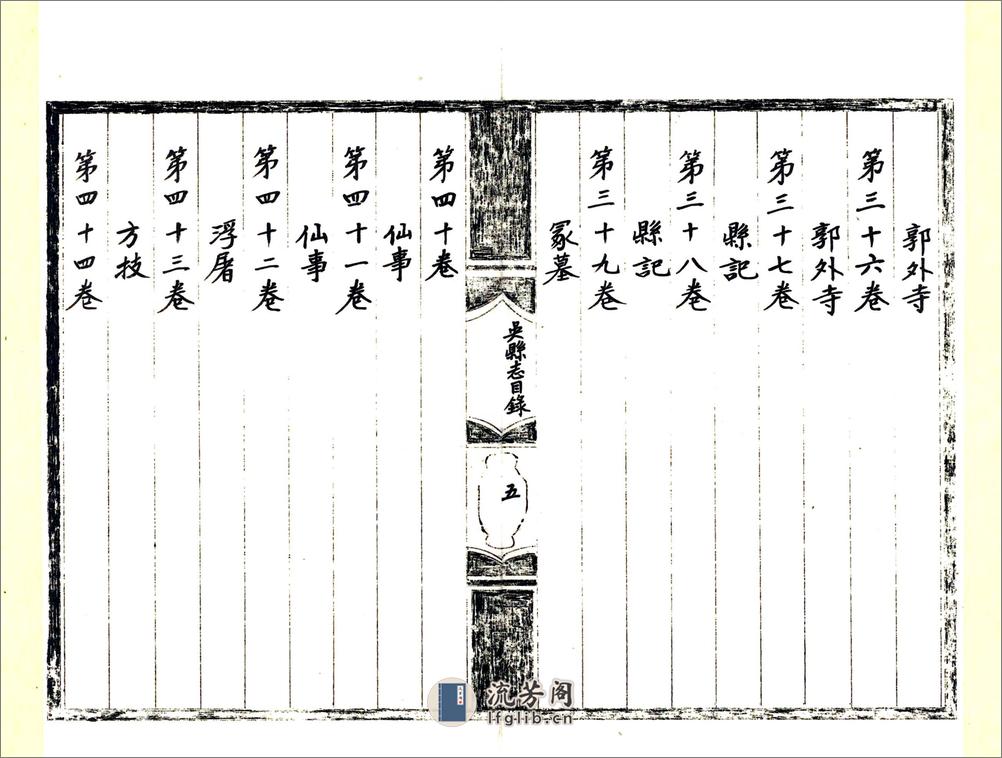 郭外寺
第三十六卷
郭外寺
第三十七卷
縣記
第三十八卷
縣記
第三十九卷
冢墓
吳縣志目錄
五
第四十卷
仙事
第四十一卷
仙事
第四十二卷
浮屠
第四十三卷
方技
第四十四卷
流芳阁
lfglib.cn